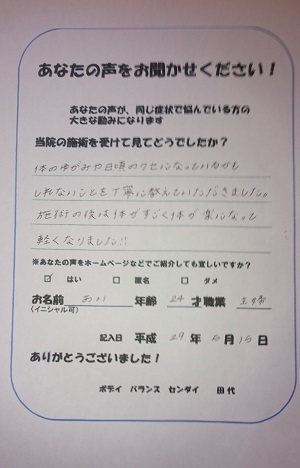 あなたの声をお聞かせください！
あなたの声が、同じ症状で悩んでいる方の
大きな励みになります
当院の施術を受けて見てどうでしたか？
体のゆがみや日頃のクセになっているかも
しれないことを丁寧に教えていただきました。
施術の後は体がすごく体が楽になって
軽くなりました!!
※あなたの声をホームページなどでご紹介しても宜しいですか？
☑ はい □ 匿名 □ ダメ
お名前 あい 年齢 24 才 職業 主婦
(イニシャル可)
記入日 平成 29 年 6月 16日
ありがとうございました！
ボデイ バランス センダイ 田代